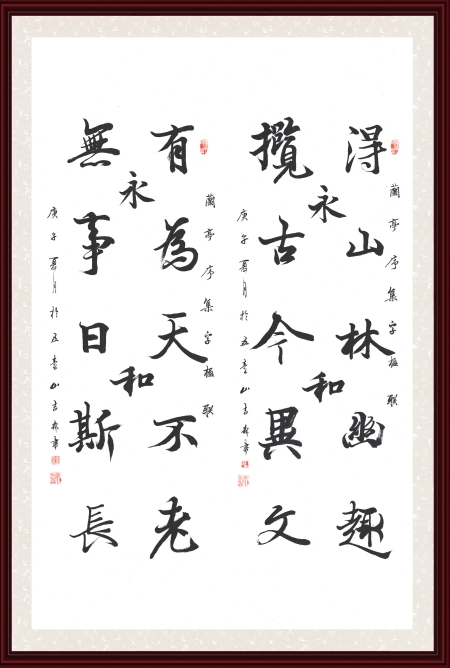 蘭亭序集字楹聯
得山林幽趣
永和
攬古今異文
庚午夏月於五臺山
蘭亭序集字楹聯
有為天不老
永和
無事日斯長
庚午夏月於五臺山